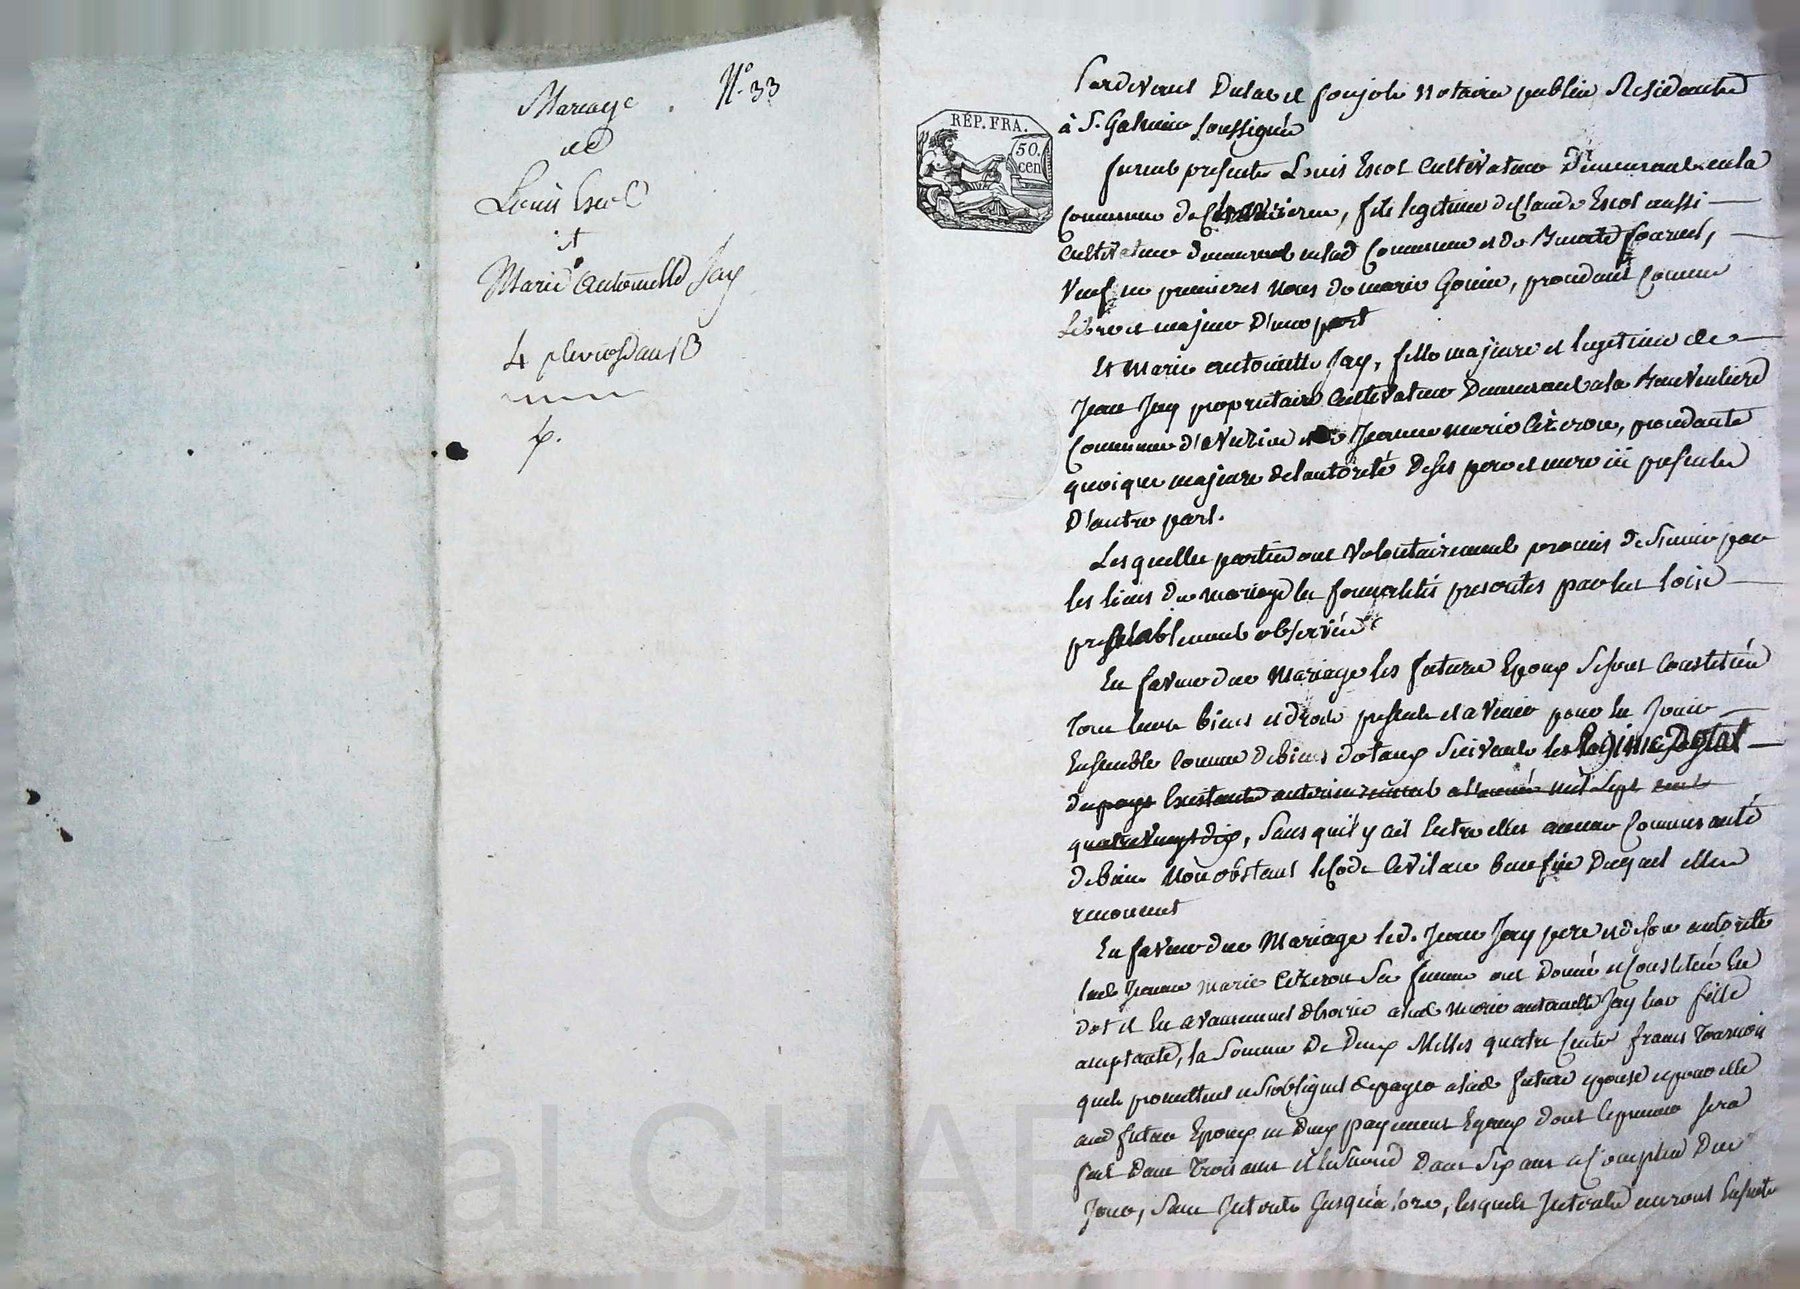 Mariage . N.° 33
de
Louis Escot
et
Marie Antoinette Jay
4 pluviose an 13
p.
RÉP. FRA.
50.
cen
Pardevant Dulac et notaire public Residents
à S. Galmier soussignés
furent presents Louis Escot cultivateur demeurant en la
commune de fils legitime de Claude Escot aussi
cultivateur demeurant en lad commune et de fournel,
veuf en premieres noces de marie Gonin, procedant comme
Libre et majeur D'une part
Et Marie antoinette Jay, fille majeure et legitime de
Jean Jay proprietaire cultivateur Demeurant a la
commune d'aveizieu et de Jeanne marie Cizeron, procedante
quoique majeure de l'autorité de ses pere et mere ici presents
D'autre part.
Lesquelles parties ont volontairement promis de s'unir par
les liens du mariage les formalités prescrites par les loix
prealablement observées
En faveur du mariage les futurs Epoux se sont constitués
tous leurs biens et droits presents et a venir pour en jouir
Ensemble comme de biens dotaux suivant le Regime Dotal
du pays Existante anterieurement a l'année mil sept cent
quatre vingt dix, sans qu'il y ait entre elles aucune communauté
de biens Non obstant le code civil au benefice duquel elles
renoncent
En faveur du Mariage led. Jean Jay pere et de son autorité
lad Jeanne marie Cizeron sa femme ont donné et constitué En
dot et En avancement d'hoirie a lad marie antoinette Jay leur fille
acceptante, la somme de Deux Milles quatre Cents francs tournois
quils promettent et s'obligent de payer a lad future epouse et pour elle
aud futur Epoux en Deux payements Egaux dont le premier sera
fait dans trois ans et le second dans six ans a compter de ce
jour, sans interets jusqu'a lors, lesquels interets auront ensuite
CHA